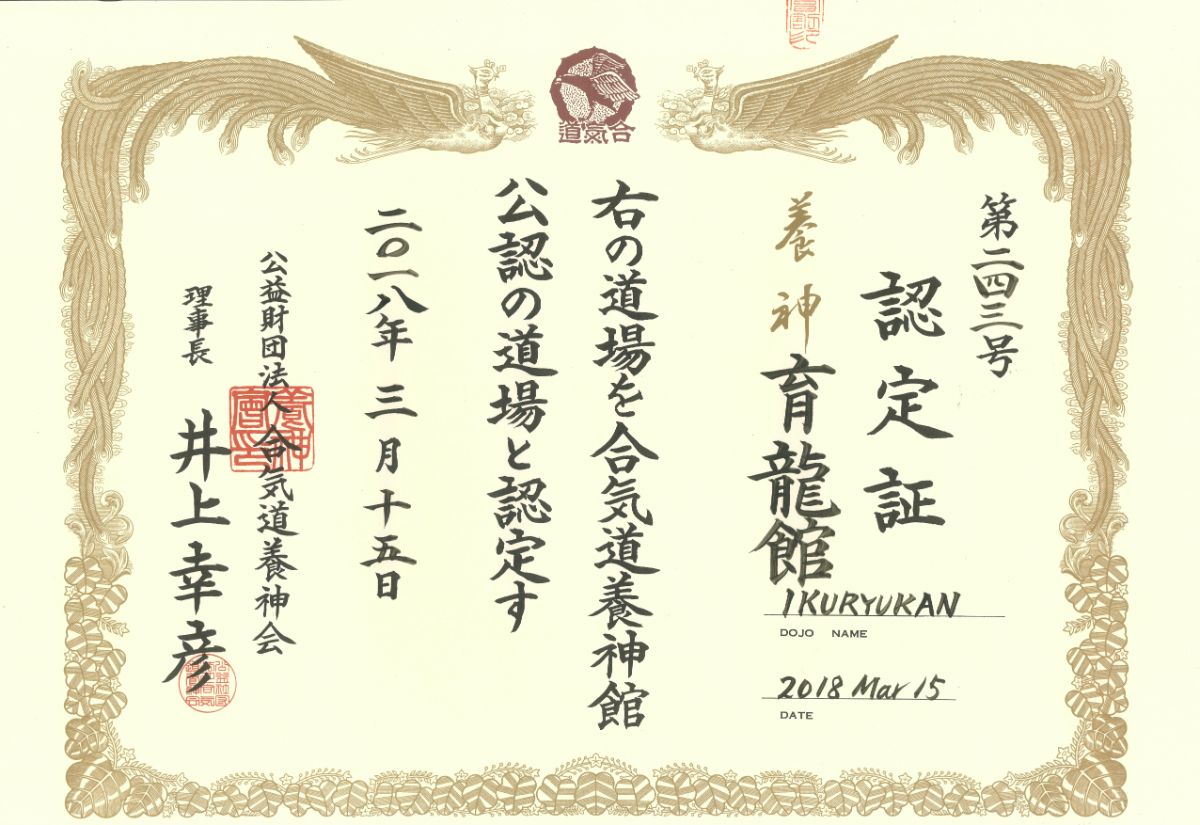 合氣道
第二四三号
認定証
養神
育龍館
IKURYUKAN
DOJO NAME
2018 Mar 15
DATE
右の道場を合気道養神館
公認の道場と認定す
二〇一八年三月十五日
公益財団法人合気道養神会
理事長 井上幸彦
養神會印